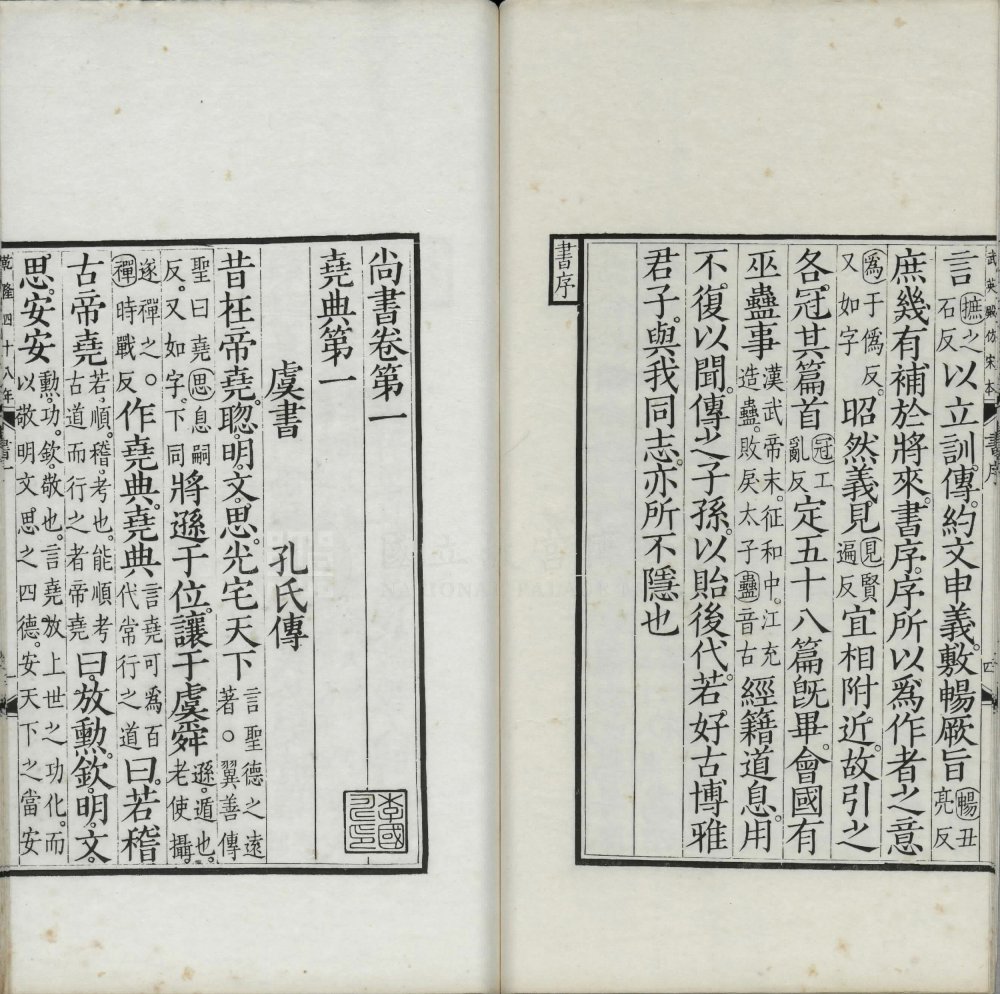 武英殿仿宋本
書序
四
言摭之石反以立訓傳。約文申義。敷暢厥旨暢丑亮反
庶幾有補於將來。書序。序所以爲作者之意
爲于僞反。又如字昭然義見。見賢遍反宜相附近。故引之
各冠其篇首冠工亂反定五十八篇旣畢。會國有
巫蠱事漢武帝末。征和中。江充造蠱。敗戾太子蠱音古經籍道息。用
不復以聞。傳之子孫。以貽後代。若好古博雅
君子。與我同志。亦所不隱也
書序
尚書卷第一
堯典第一
虞書 孔氏傳
昔在帝堯。聰明文思。光宅天下言聖德之遠著。○翼善傳
聖曰堯思息嗣反。又如字。下同將遜于位。讓于虞舜遜。遁也。老使攝。
遂禪之。○禪時戰反作堯典。堯典言堯可爲百代常行之道曰。若稽
古帝堯若。順。稽。考也。能順考古道而行之者帝堯曰。放勳。欽。明。文。
思。安安勳。功。欽。敬也。言堯放上世之功化。而以敬明文思之四德。安天下之當安
乾隆四十八年
書一
一